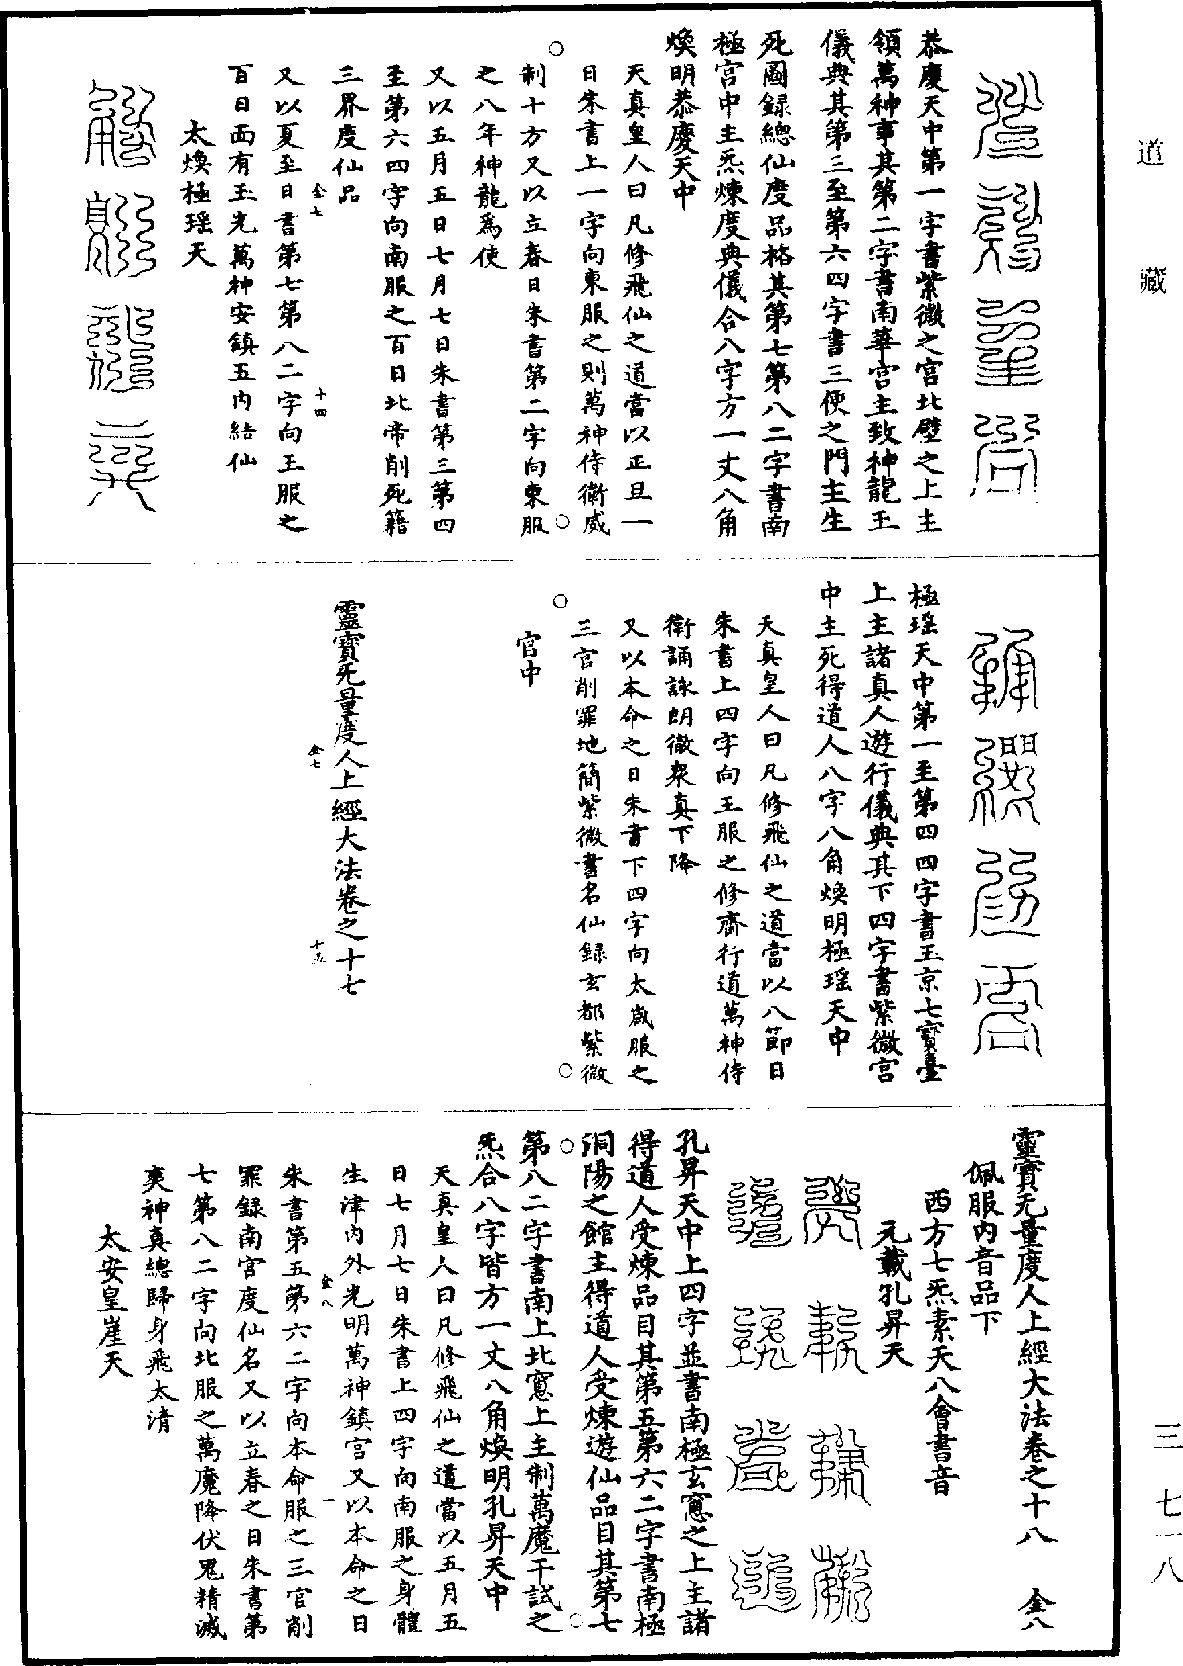 道藏
恭慶天中第一字書紫微之宮北壁之上主
領萬神事其第二字書南華宮主致神龍玉
儀典其第三至第六四字書三便之門主生
死圖録總仙度品格其第七第八二字書南
極宮中主炁煉度典儀合八字方一丈八角
煥明恭慶天中
天真皇人曰凡修飛仙之道當以正旦一
日朱書上一字向東服之則萬神侍衛威
制十方又以立春日朱書第二字向東服
之八年神龍爲使
又以五月五日七月七日朱書第三第四
至第六四字向南服之百日北帝削死籍
三界度仙品
金七
十四
又以夏至日書第七第八二字向王服之
百日面有玉光萬神安鎮五內結仙
太煥極瑶天
極瑶天中第一至第四四字書玉京七寳臺
上主諸真人遊行儀典其下四字書紫微宮
中主死得道人八字八角煥明極瑶天中
天真皇人曰凡修飛仙之道當以八節日
朱書上四字向王服之修齋行道萬神侍
衛誦詠朗徹衆真下降
又以本命之日朱書下四字向太歲服之
三官削罪地簡紫微書名仙録玄都紫微
官中
靈寳无量度人上經大法卷之十七
金七
十五
靈寳无量度人上經大法卷之十八 金八
佩服內音品下
西方七炁素天八會書音
元載孔昇天
孔昇天中上四字並書南極玄窻之上主諸
得道人受煉品目其第五第六二字書南極
洞陽之館主得道人受煉遊仙品目其第七
第八二字書南上北窻上主制萬魔干試之
炁合八字皆方一丈八角煥明孔昇天中
天真皇人曰凡修飛仙之道當以五月五
日七月七日朱書上四字向南服之身體
生津內外光明萬神鎮宮又以本命之日
金八
一
朱書第五第六二字向本命服之三官削
罪録南宮度仙名又以立春之日朱書第
七第八二字向北服之萬魔降伏鬼精滅
爽神真總歸身飛太清
太安皇崖天
三 七一八